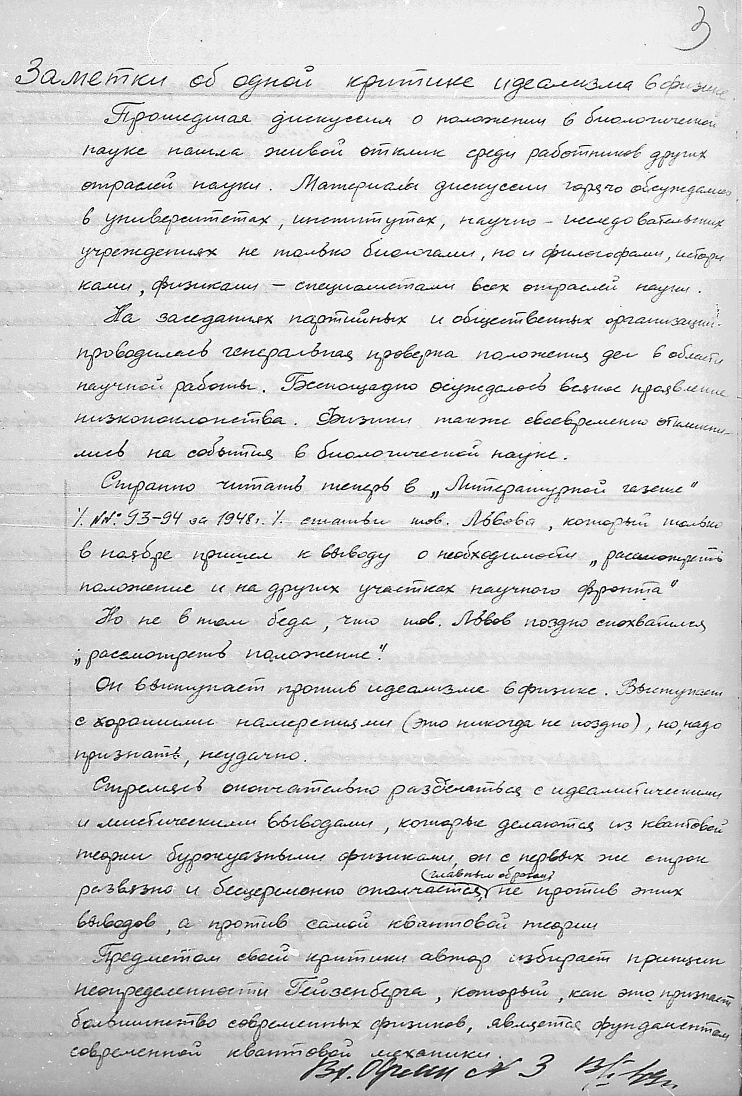 3
Заметки об одной критике идеализма в физике.
Прошедшая дискуссия о положении в биологической
науке нашла живой отклик среди работников других
отраслей науки. Материалы дискуссии горячо обсуждались
в университетах, институтах, научно-исследовательских
учреждениях не только биологами, но и философами, истори
ками, физиками – специалистами всех отраслей науки.
На заседаниях партийных и общественных организаций
проводилась генеральная проверка положения дел в области
научной работы. Беспощадно осуждалось всякое проявление
низкопоклонства. Физики также своевременно откликну-
лись на события в биологической науке.
Странно читать теперь в „Литературной газете"
/. №№: 93-94 за 1948 г. /. статьи тов. Львова, который только
в ноябре пришел к выводу о необходимости „рассмотреть
положение и на других участках научного фронта"
Но не в том беда, что тов. Львов поздно спохватился
„рассмотреть положение".
Он выступает против идеализма в физике. Выступает
с хорошими намерениями (это никогда не поздно), но, надо
признать, неудачно.
Стремясь окончательно разделаться с идеалистическими
и мистическими выводами, которые делаются из квантовой
теории буржуазными физиками, он с первых же строк
(главным образом)
развязно и бесцеремонно ополчается, не против этих
выводов, а против самой квантовой теории
Предметом своей критики автор избирает принцип
неопределенности Гейзенберга, который, как это признает
большинство современных физиков, является фундаментом
современной квантовой механики.
Вх. № 3